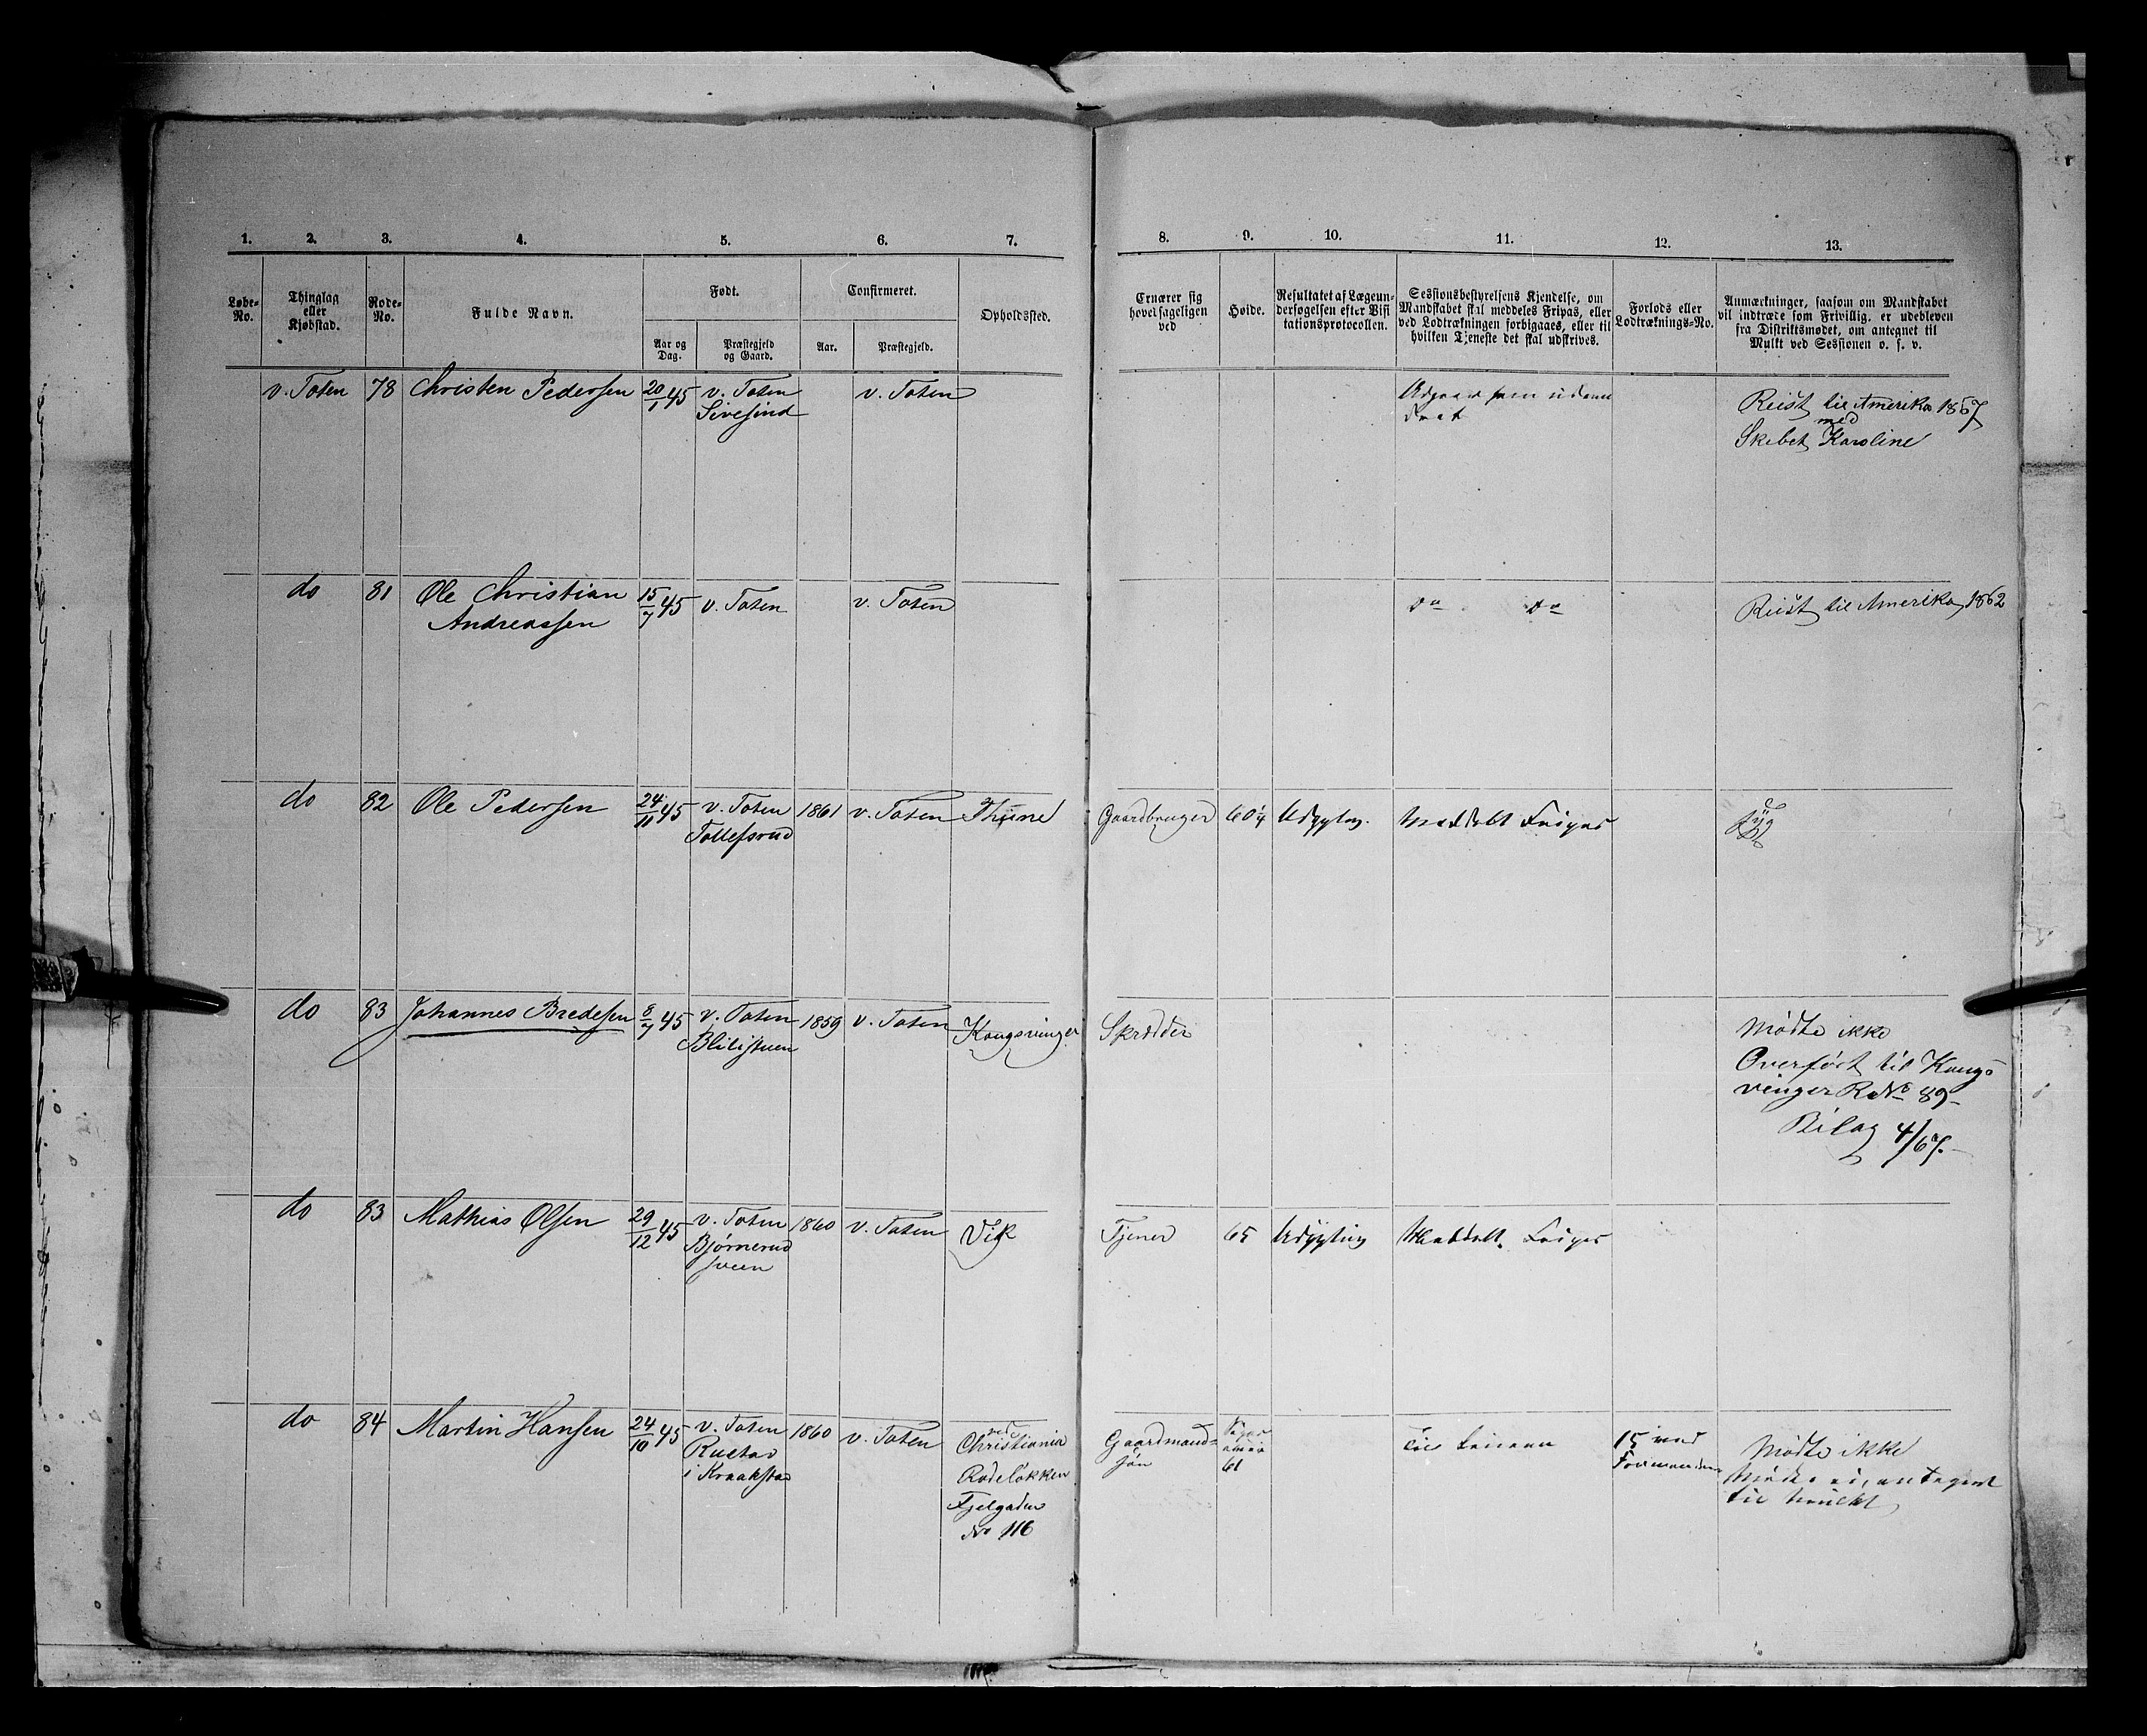 1. 2. 3. 4. 5. 6. 7. 8. 9. 10. 11. 12. 13.
Løbe-No.
Thinglag eller Kjøbstad.
Rode-No.
Fulde Navn.
Født.
Aar og Dag.
Præstegjeld og Gaard.
Confirmeret.
Aar.
Præstegjeld.
Opholdssted.
Ernærer sig hovedsageligen ved
Høide.
Resultatet af Lægeundersøgelsen efter Visitationsprotocollen.
Sessionsbestyrelsens Kjendelse, om Mandskabet skal meddeles Fripas, eller ved Lodtrækningen forbigaaes, eller til hvilken Tjeneste det skal udskrives.
Forlods eller Lodtræknings-No.
Anmærkninger, saasom om Mandskabet vil indtræde som Frivillig, er udebleven fra Distriktsmødet, om antegnet til Mulkt ved Sessionen o. s. v.
v. Toten 78 Christen Pedersen 20/1 45 v. Toten v. Toten Udgaar som udenn Reist til Amerika 1867
Sivesind drat med
Skibet Karoline
do 81 Ole Christian 15/7 45 v. Toten v. Toten do do Reist til Amerika 1862
Andreassen
do 82 Ole Pedersen 24/11 45 v. Toten 1861 v. Toten Thune Gaardbruger 60¼ Udygtig. Meddelt Fripas
Tollefsrud
do 83 Johannes Bredesen 8/7 45 v. Toten 1859 v. Toten Kongsvinger Skrædder Mødte ikke
Blilistuen Overført til Kongs
vinger R No 89-
Bilag 4/67.
do 83 Mathias Olsen 29/12 45 v. Toten 1860 v. Toten Vik Tjener 65 Udygtig Meddelt Fripas
Bjørnerud
sveen
do 84 Martin Hansen 24/10 45 v. Toten 1860 v. Toten ved Christiania Gaardmands- Til Linien 15 ved Mødte ikke
Rustad Rodeløkken søn 61 Formanden Mødte ei, antegnet
i Kraakstad Fjelgaden til Mulkt
No 116